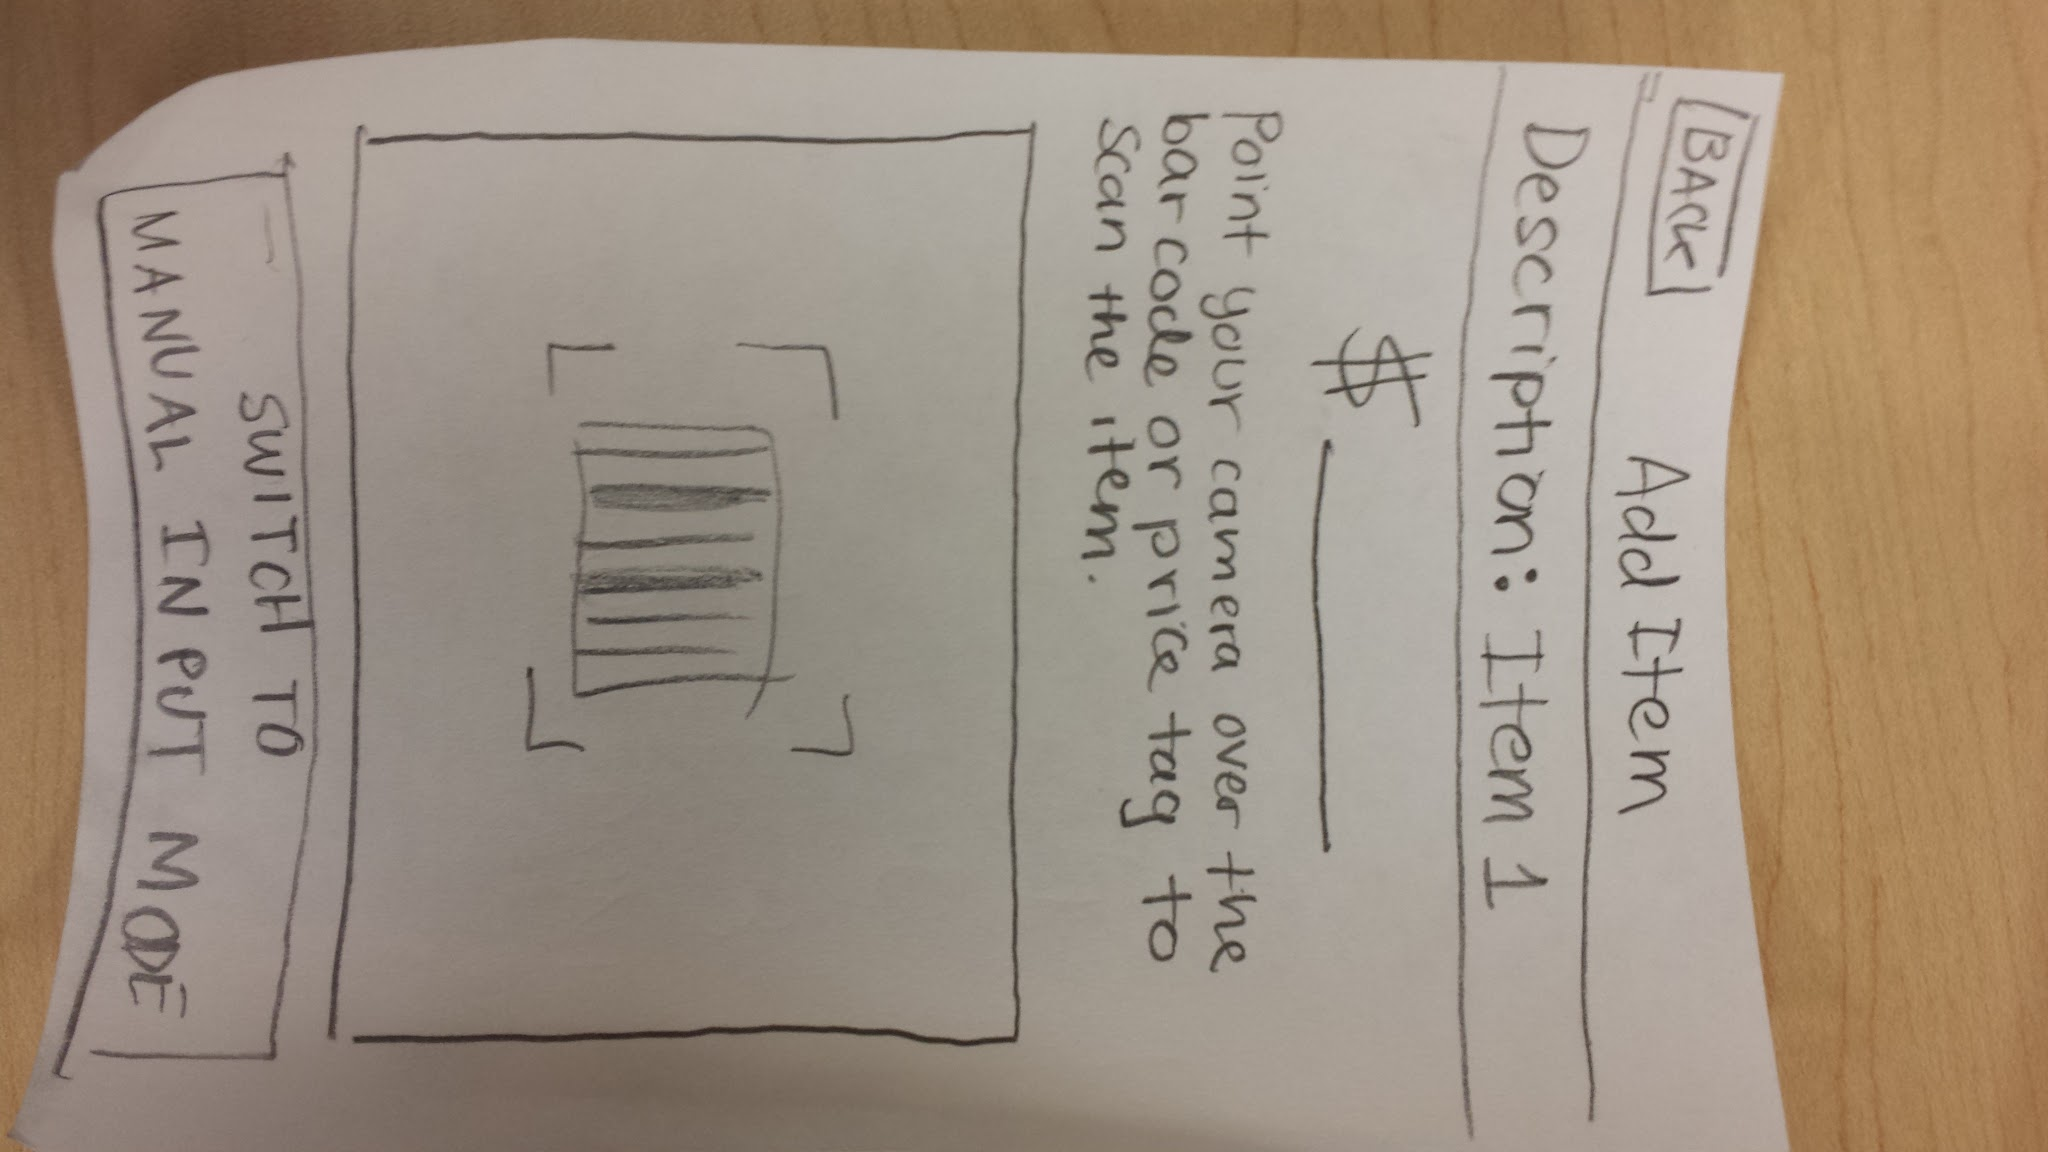 BACK
Add Item
Description: Item 1
$
Point your camera over the
barcode or price tag to
scan the item.
SWITCH TO
MANUAL INPUT MODE